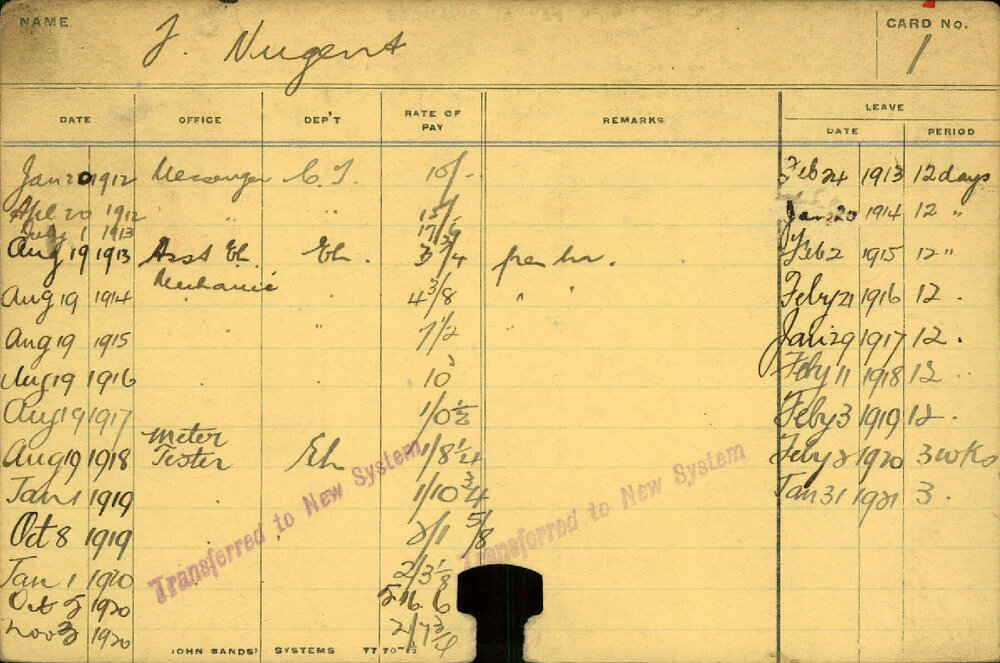 NAME J. Nugent CARD No. 1
DATE OFFICE DEP'T RATE OF PAY REMARKS LEAVE
DATE PERIOD
Jan 20 1912 Messenger C.T. 10/- Feb 24 1913 12 days
Apl 20 1912 " " 15/- Jan 20 1914 12 "
July 1 1913 17/6
Aug 19 1913 Asst El. El. per hr. Feb 2 1915 12 "
Mechanic
Aug 19 1914 4 3/8 " " Feby 21 1916 12 .
Aug 19 1915 " 7 1/2 " Jan 29 1917 12 .
Aug 19 1916 10 Feby 11 1918 12
Aug 19 1917 1/0 1/2 Feby 3 1919 12 .
Meter
Aug 19 1918 Tester El. 1/8 1/4 Feby 2 1920 3 wks
Jan 1 1919 1/10 3/4 Jan 31 1921 3 .
Oct 8 1919 2/1 5/8
Transferred to New System Transferred to New System
Jan 1 1920 2/3 1/8
Oct 5 1920 5.16.6
Nov 1920 2/7 3/4
JOHN SANDS' SYSTEMS